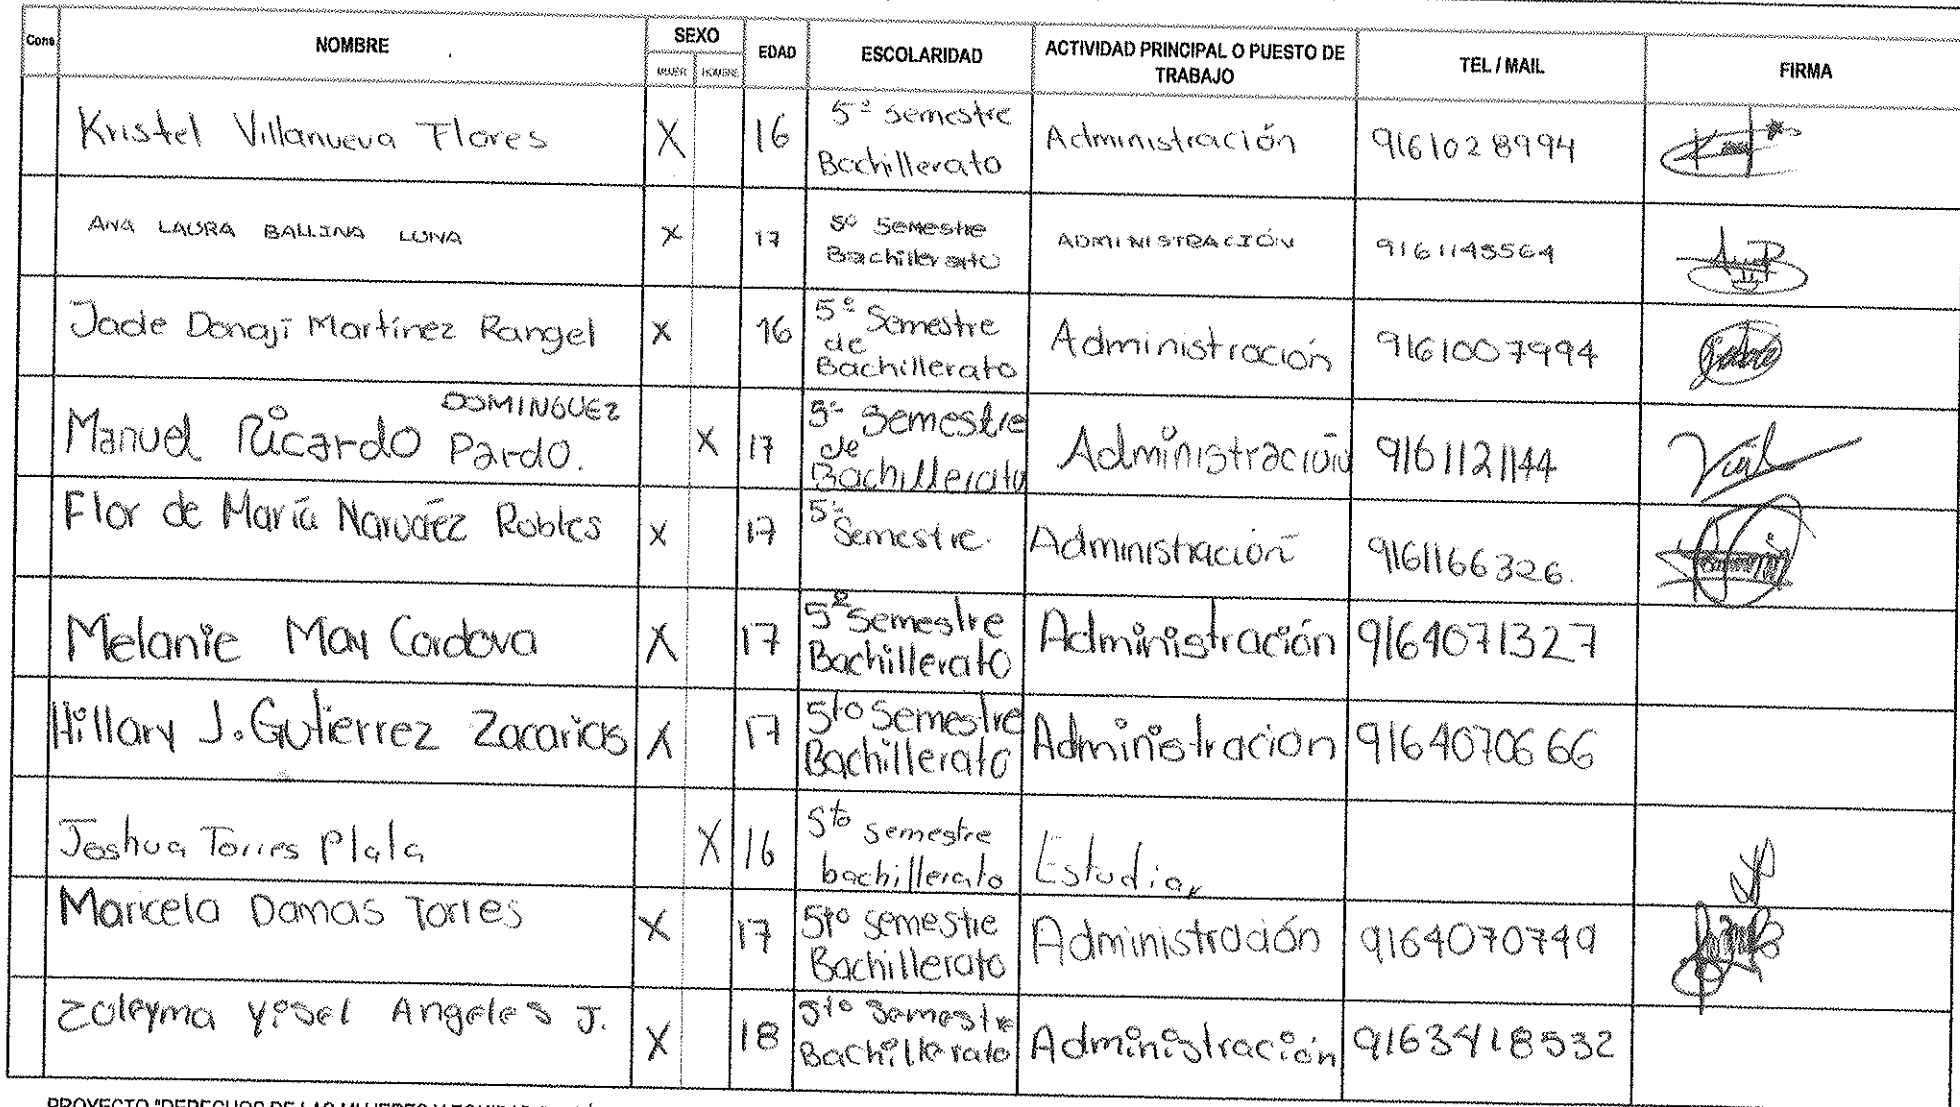 Cons NOMBRE SEXO EDAD ESCOLARIDAD ACTIVIDAD PRINCIPAL O PUESTO DE TRABAJO TEL / MAIL FIRMA
MUJER HOMBRE
Kristel Villanueva Flores X 16 5º semestre Bachillerato Administración 9161028994
ANA LAURA BALLINA LUNA X 17 5º Semestre Bachillerato ADMINISTRACIÓN 9161148564
Jade Donají Martínez Rangel X 16 5º Semestre de Bachillerato Administración 9161007994
Manuel Ricardo DOMINGUEZ Pardo. X 17 5º Semestre de Bachillerato Administración 9161121144
Flor de María Narváez Robles X 17 5º Semestre. Administración 9161166326.
Melanie May Cordova X 17 5º Semestre Bachillerato Administración 9164071327
Hillary J. Gutierrez Zacarias X 17 5to Semestre Bachillerato Administración 9164070666
Joshua Torres Plala X 16 5to semestre bachillerato Estudiar
Maricela Damas Torres X 17 5to semestre Bachillerato Administración 9164070749
Zuleyma Yisel Angeles J. X 18 5to Semestre Bachillerato Administración 9163418532
PROYECTO "DERECHOS DE LAS MUJERES Y